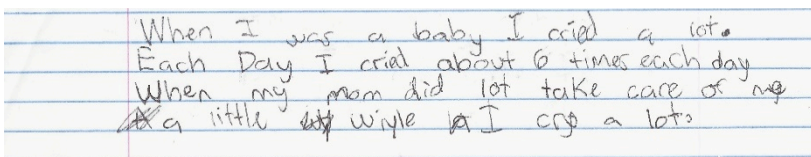 When I was a baby I cried a lot.
Each Day I cried about 6 times each day
When my mom did lot take care of me
a little wiyle I cry a lot.